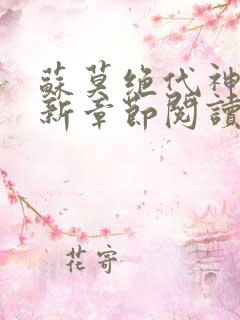 蘇莫絕代神
新章節閱讀
花寄